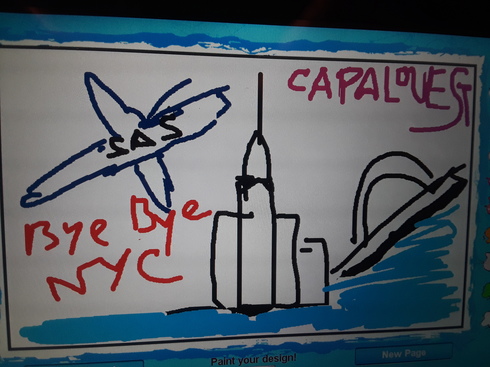 CAPALOVEST
SAS
Bye Bye
NYC
Paint your design!
New Page